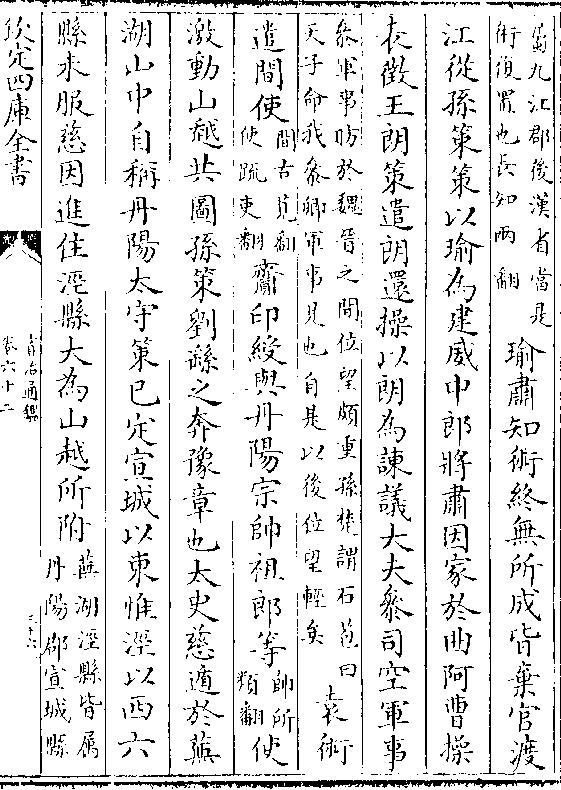 屬九江郡後漢省當是
術復置也長知兩翻
瑜肅知術終無所成皆棄官渡
江從孫策策以瑜為建威中郎將肅因家於曲阿曹操
表徵王朗策遣朗還操以朗為諫議大夫叅司空軍事
叅軍事昉於魏晉之間位望頗重孫楚謂石苞曰
天子命我叅卿軍事是也自是以後位望輕矣
袁術
遣間使
間古莧翻
使疏吏翻
齎印綬與丹陽宗帥祖郎等
帥所
類翻
使
激動山越共圖孫策劉繇之奔豫章也太史慈遁於蕪
湖山中自稱丹陽太守策已定宣城以東惟涇以西六
縣未服慈因進住涇縣大為山越所附
蕪湖涇縣皆屬
丹陽郡宣城縣
欽定四庫全書
資治通鑑
卷六十二
三十六